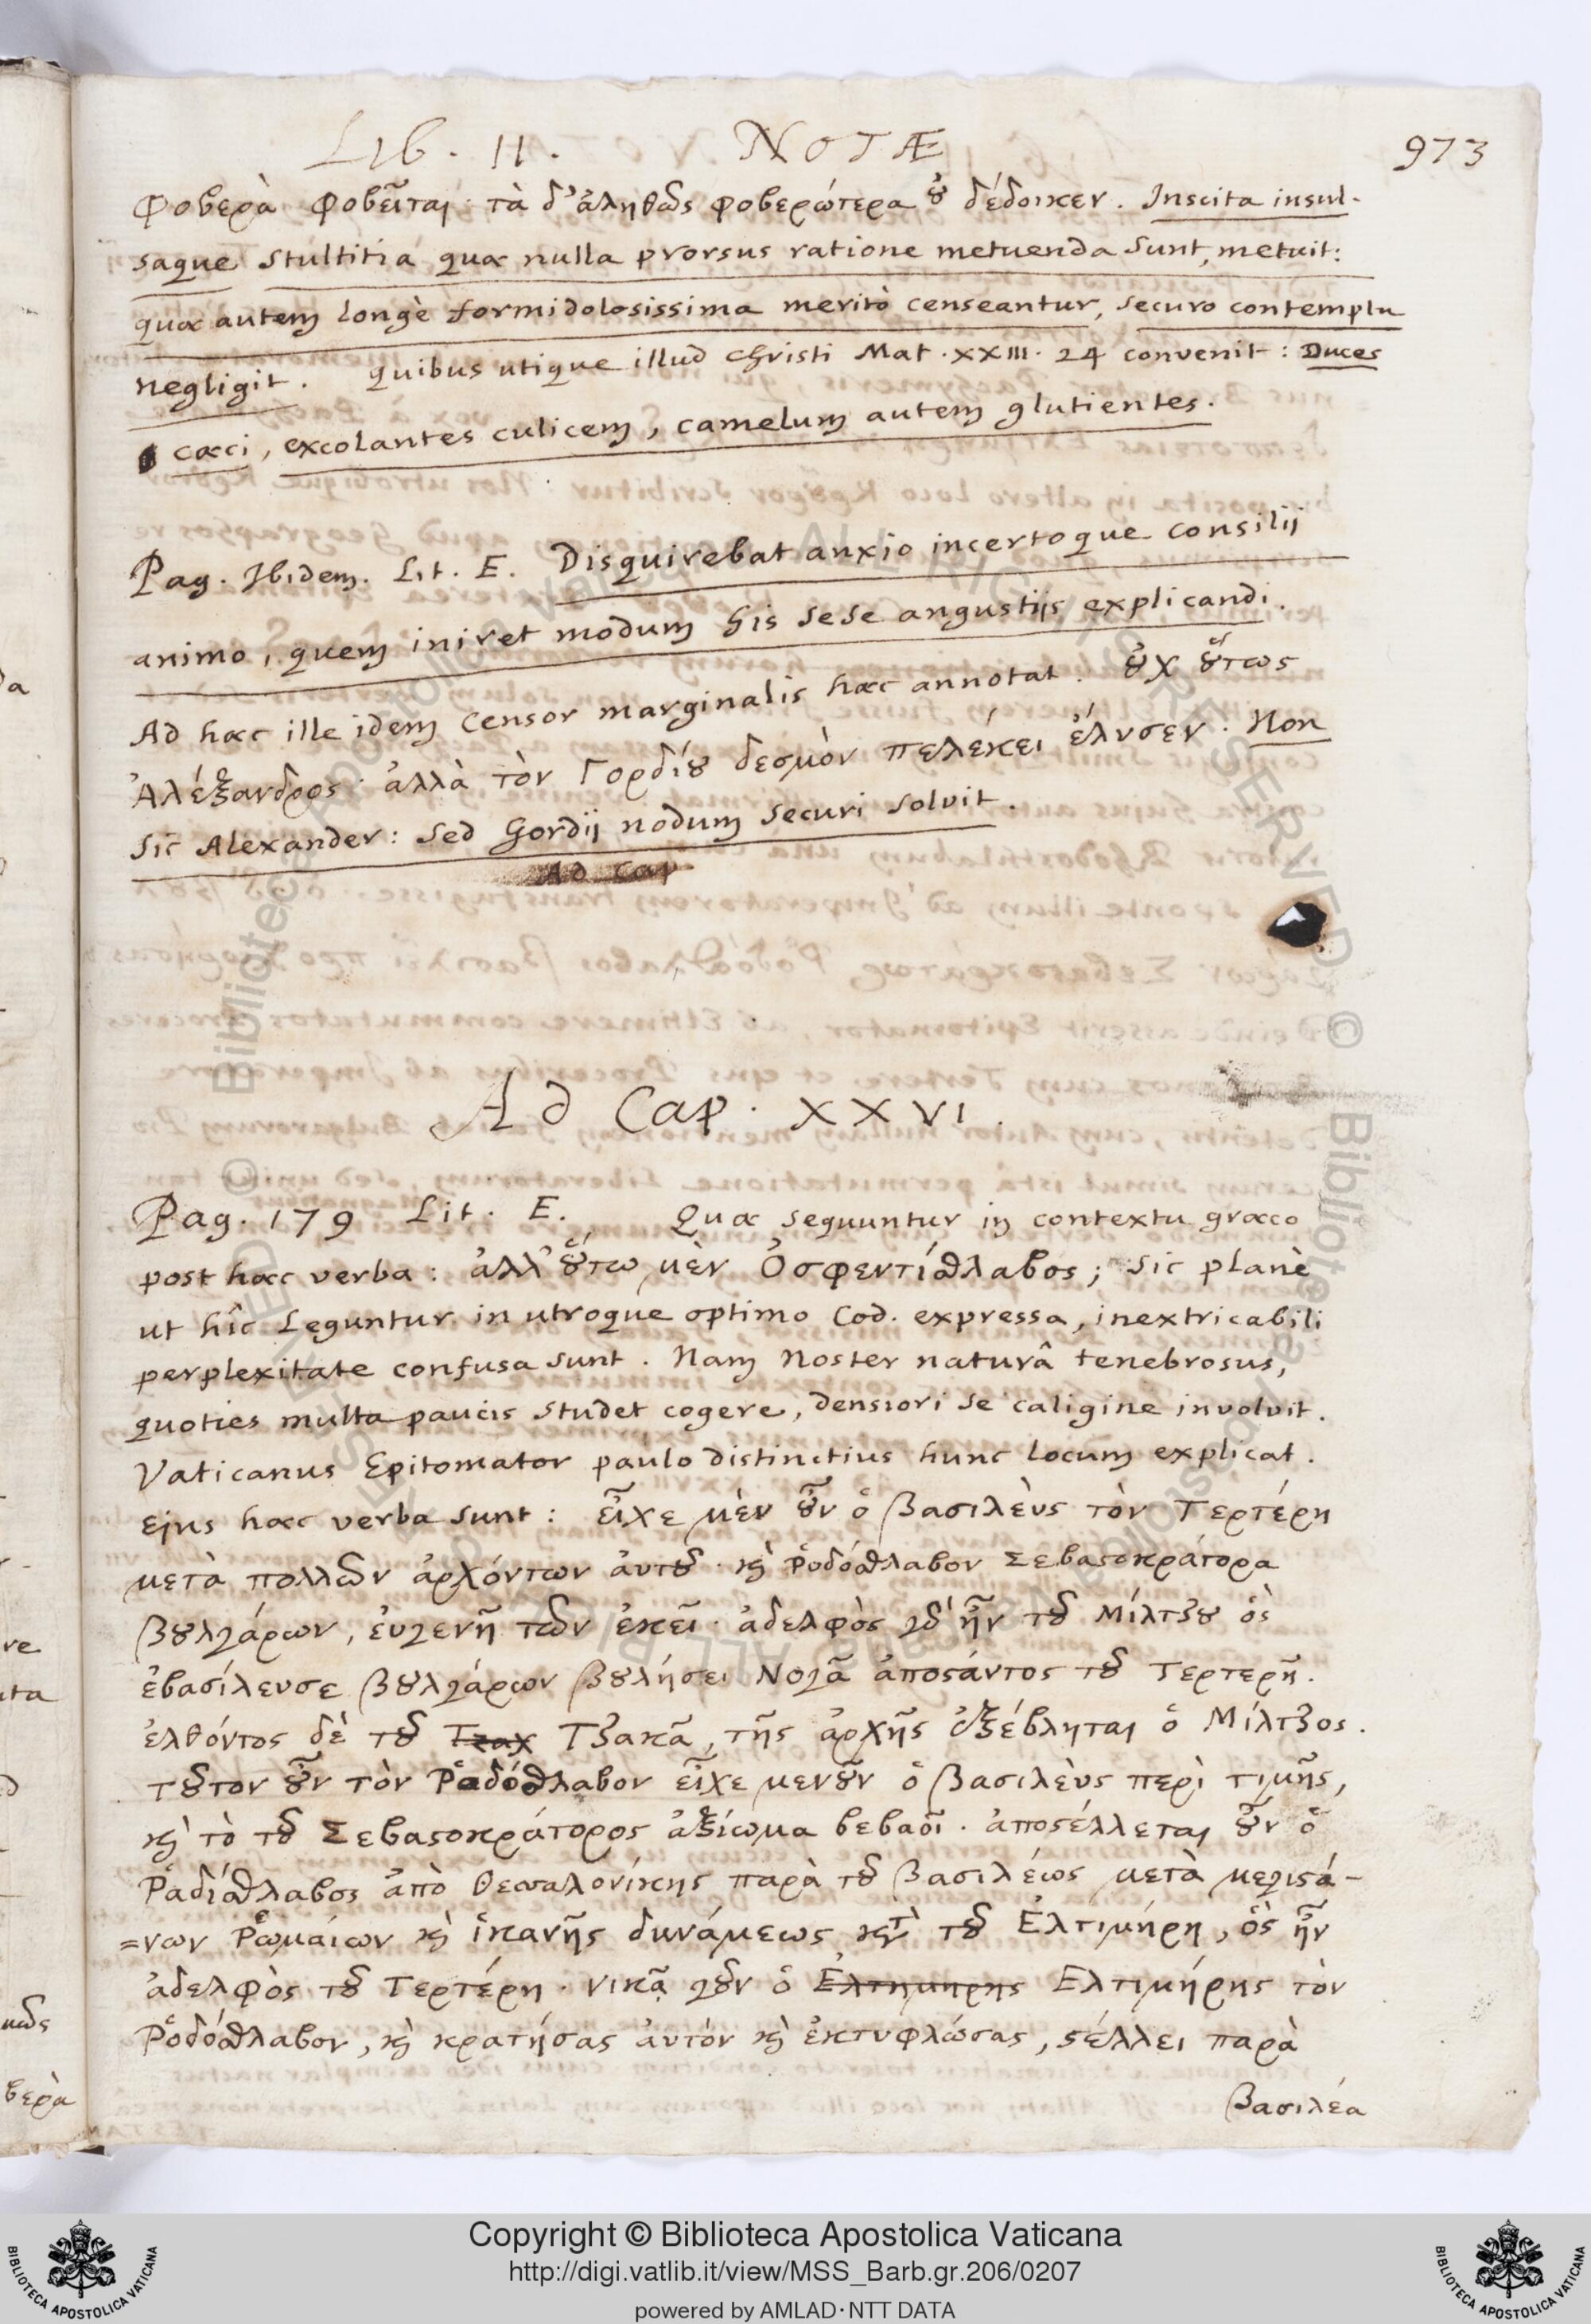 Lib. II. NOTÆ 973
φοβερὰ φοβεῖται· τὰ δ' ἀληθῶς φοβερώτερα οὐ δέδοικεν. Inscita insul-
saque stultitia quæ nulla prorsus ratione metuenda sunt, metuit:
quæ autem longè formidolosissima meritò censeantur, securo contemptu
negligit. Quibus utique illud Christi Mat. XXIII. 24 convenit: Duces
cæci, excolantes culicem, camelum autem glutientes.
Pag. Ibidem. Lit. E. Disquirebat anxio incertoque consilij
animo, quem iniret modum his sese angustijs explicandi.
Ad hæc ille idem censor marginalis hæc annotat. οὐχ οὕτως
Ἀλέξανδρος· ἀλλὰ τὸν Γορδίου δεσμὸν πελέκει ἔλυσεν. Non
sic Alexander: sed Gordij nodum securi solvit.
Ad Cap
Ad Cap. XXVI.
Pag. 179 Lit. E. Quæ sequuntur in contextu græco
post hæc verba: ἀλλ' οὕτω μὲν Ὀσφεντίσθλαβος; sic planè
ut hîc leguntur in utroque optimo Cod. expressa, inextricabili
perplexitate confusa sunt. Nam Noster naturâ tenebrosus,
quoties multa paucis studet cogere, densiori se caligine involvit.
Vaticanus Epitomator paulo distinctius hunc locum explicat.
Ejus hæc verba sunt: εἶχε μὲν οὖν ὁ βασιλεὺς τὸν Τερτέρη
μετὰ πολλῶν ἀρχόντων αὐτοῦ· καὶ Ῥοδόσθλαβον Σεβαστοκράτορα
βουλγάρων, εὐγενῆ τῶν ἐκεῖ· ἀδελφὸς γὰρ ἦν τοῦ Μίλτζου ὃς
ἐβασίλευσε βουλγάρων βουλήσει Νογᾶ ἀποστάντος τοῦ Τερτερῆ.
ἐλθόντος δὲ τοῦ Τζακ Τζακᾶ, τῆς ἀρχῆς ἐξέβληται ὁ Μίλτζος.
τοῦτον οὖν τὸν Ῥαδόσθλαβον εἶχε μενοῦν ὁ βασιλεὺς περὶ τιμῆς,
καὶ τὸ τοῦ Σεβαστοκράτορος ἀξίωμα βεβαοῖ. ἀποστέλλεται οὖν ὁ
Ῥαδίσθλαβος ἀπὸ Θεσσαλονίκης παρὰ τοῦ βασιλέως μετὰ μεγιστά-
=νων Ῥωμαίων καὶ ἱκανῆς δυνάμεως κατὰ τοῦ Ἐλτιμήρη, ὃς ἦν
ἀδελφὸς τοῦ Τερτέρη. νικᾷ γοῦν ὁ Ἐλτημηρης Ελτιμήρης τὸν
Ῥοδόσθλαβον, καὶ κρατήσας αὐτὸν καὶ ἐκτυφλώσας, στέλλει παρὰ
βασιλέα
Copyright © Biblioteca Apostolica Vaticana
http://digi.vatlib.it/view/MSS_Barb.gr.206/0207
powered by AMLAD·NTT DATA
BIBLIOTECA APOSTOLICA VATICANA
BIBLIOTECA APOSTOLICA VATICANA